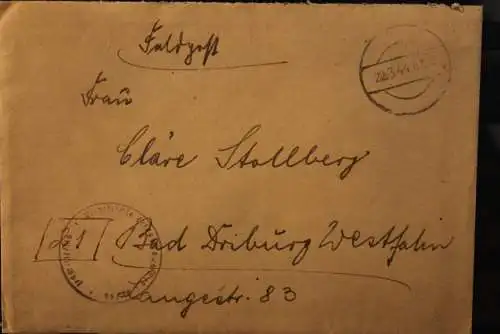 Feldpost
Frau
Cläre Stollberg
21 Bad Driburg Westfahln
Langestr. 83